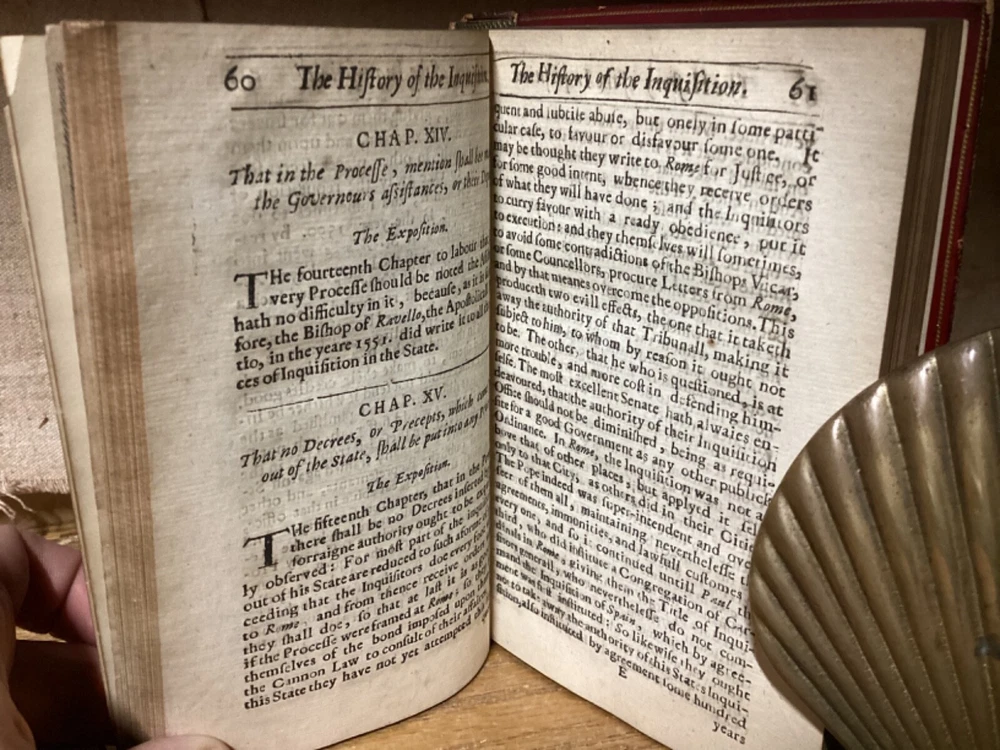 60 The History of the Inquisition.
CHAP. XIV.
That in the Processe, mention shall be
the Governours assistances, or their
The Exposition.
THe fourteenth Chapter to labour
very Processe should be noted the
hath no difficulty in it, because, as it is
fore, the Bishop of Ravello, the Apostolical
tio, in the yeare 1551. did write it to all
ces of Inquisition in the State.
CHAP. XV.
That no Decrees, or Precepts, which
out of the State, shall be put into any
The Exposition.
THe fifteenth Chapter, that in the
there shall be no Decrees inserted
forraigne authority ought to be
ly observed: For most part of the
out of his State are reduced to such
ceeding that the Inquisitors doe every
to Rome, and from thence receive
they shall doe, so that at last it is
if the Processe were framed at Rome; so
themselves of the bond imposed upon
the Cannon Law to consult of their
this State they have not yet attempted
The History of the Inquisition. 61
quent and subtile abuse, but onely in some parti-
cular case, to favour or disfavour some one. It
may be thought they write to Rome for Justice, or
for some good intent, whence they receive orders
of what they will have done; and the Inquisitors
to curry favour with a ready obedience, put it
to execution: and they themselves will sometimes,
to avoid some contradictions of the Bishops Vicar,
or some Councellors, procure Letters from Rome,
and by that meanes overcome the oppositions. This
producth two evill effects, the one that it taketh
away the authority of that Tribunall, making it
subject to him, to whom by reason it ought not
to be. The other, that he who is questioned, is at
more trouble, and more cost in defending him-
selfe. The most excellent Senate hath alwaies en-
deavoured, that the authority of their Inquisition
Office should not be diminished, being as requi-
site for a good Government as any other publick
Ordinance. In Rome, the Inquisition was not a-
bove that of other places, but applyed it self
only to that City, as others did in their Cities
The Pope indeed was super-intendent and over-
seer of them all, maintaining nevertheless the
agreements, immonities, and lawfull customes
every one, and so it continued until Paul the
third, who did institute a Congregation of Car-
dinals in Rome, giving them the Title of Inqui-
sitors generall; who neverthelesse do not com-
mand the Inquisition of Spain, which by agree-
ment was first instituted: So likewise they ought
not to take away the authority of this States Inqui-
sition, also instituted by agreement some hundred
E
years